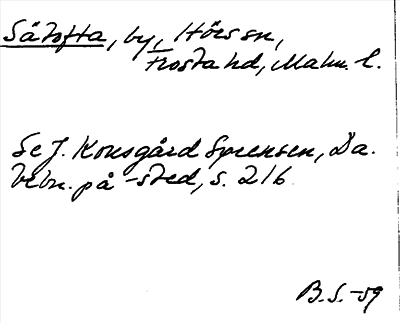 Sätofta, by, Hörs sn,
Frosta hd, Malm. l.
Se J. Kousgård Sørensen, Da.
bebn. på -sted, s. 216
B. S. -59